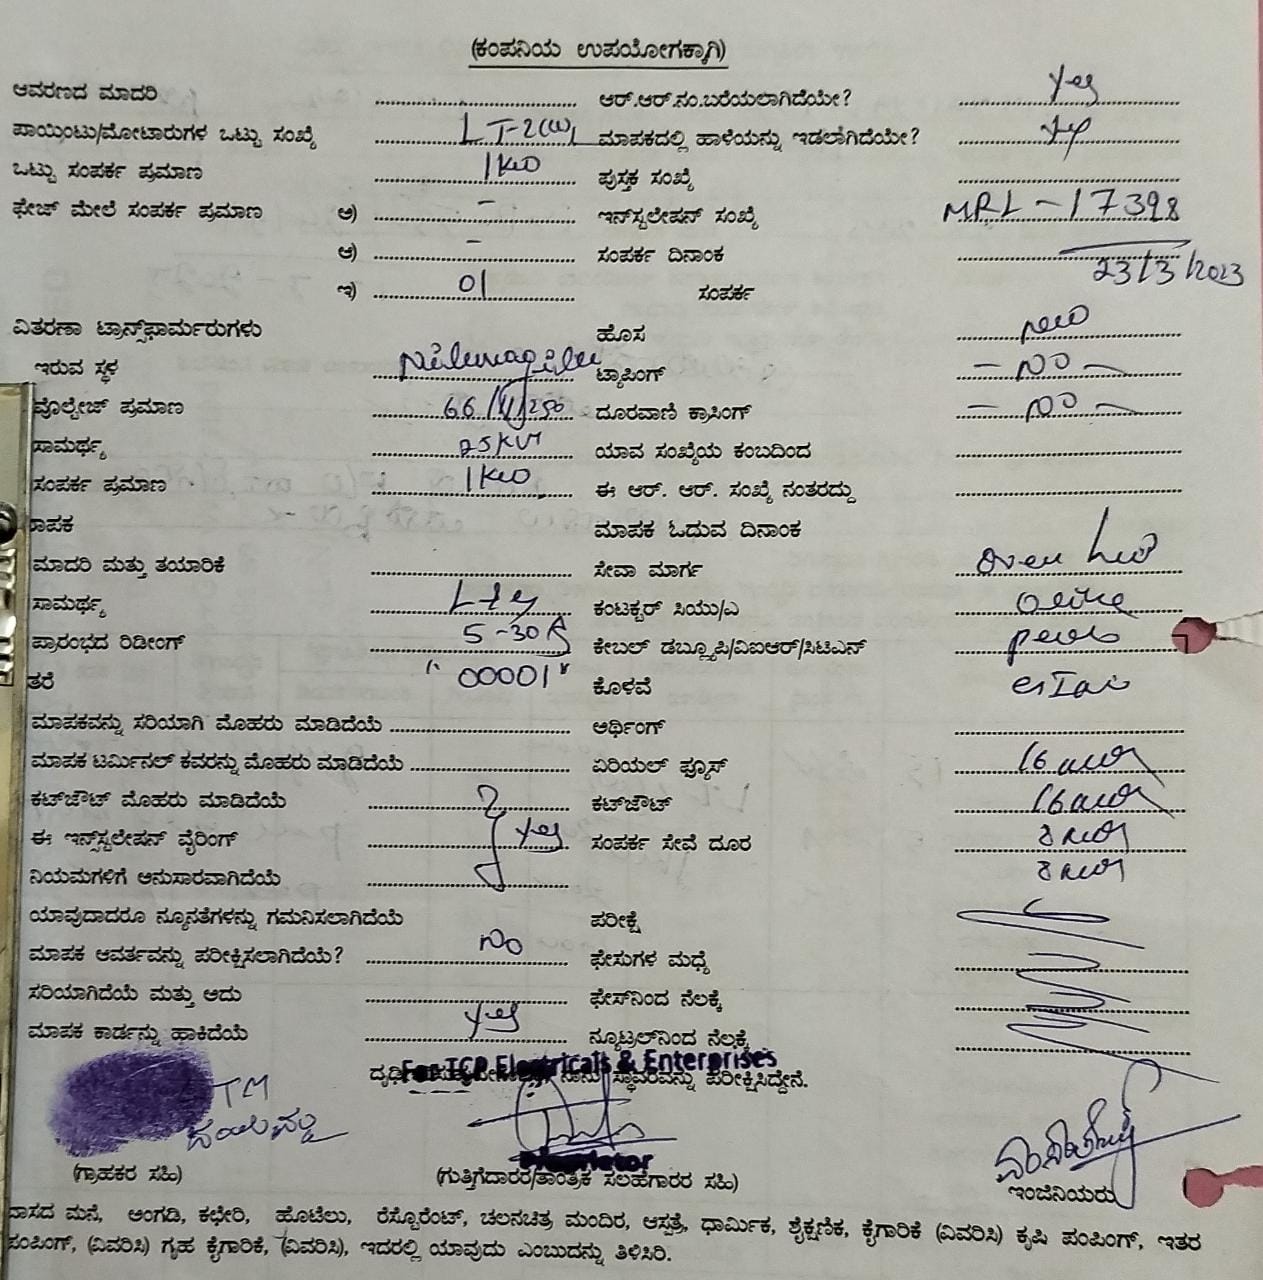 (ಕಂಪನಿಯ ಉಪಯೋಗಕ್ಕಾಗಿ)
ಆವರಣದ ಮಾದರಿ ಆರ್.ಆರ್.ನಂ.ಬರೆಯಲಾಗಿದೆಯೇ? Yes
ಪಾಯಿಂಟು/ಮೋಟಾರುಗಳ ಒಟ್ಟು ಸಂಖ್ಯೆ LT-2(a) ಮಾಪಕದಲ್ಲಿ ಹಾಳೆಯನ್ನು ಇಡಲಾಗಿದೆಯೇ?
ಒಟ್ಟು ಸಂಪರ್ಕ ಪ್ರಮಾಣ 1KW ಪುಸ್ತಕ ಸಂಖ್ಯೆ
ಫೇಜ್ ಮೇಲೆ ಸಂಪರ್ಕ ಪ್ರಮಾಣ ಅ) - ಇನ್‌ಸ್ಟಲೇಷನ್ ಸಂಖ್ಯೆ MRL-17398
ಆ) - ಸಂಪರ್ಕ ದಿನಾಂಕ 23/3/2023
ಇ) 01 ಸಂಪರ್ಕ
ವಿತರಣಾ ಟ್ರಾನ್ಸ್‌ಫಾರ್ಮರುಗಳು ಹೊಸ new
ಇರುವ ಸ್ಥಳ ಟ್ಯಾಪಿಂಗ್ - NO -
ವೊಲ್ಟೇಜ್ ಪ್ರಮಾಣ ದೂರವಾಣಿ ಕ್ರಾಸಿಂಗ್ - NO -
ಸಾಮರ್ಥ್ಯ 25KVA ಯಾವ ಸಂಖ್ಯೆಯ ಕಂಬದಿಂದ
ಸಂಪರ್ಕ ಪ್ರಮಾಣ 1KW ಈ ಆರ್. ಆರ್. ಸಂಖ್ಯೆ ನಂತರದ್ದು
ಮಾಪಕ ಓದುವ ದಿನಾಂಕ
ಮಾದರಿ ಮತ್ತು ತಯಾರಿಕೆ ಸೇವಾ ಮಾರ್ಗ
ಸಾಮರ್ಥ್ಯ L&G ಕಂಟಕ್ಟರ್ ಸಿಯು/ಎ
ಪ್ರಾರಂಭದ ರಿಡೀಂಗ್ 5-30A ಕೇಬಲ್ ಡಬ್ಲ್ಯೂಪಿ/ವಿಐಆರ್/ಸಿಟಿಎನ್
ತರೆ "00001" ಕೊಳವೆ
ಮಾಪಕವನ್ನು ಸರಿಯಾಗಿ ಮೊಹರು ಮಾಡಿದೆಯೆ ಅರ್ಥಿಂಗ್
ಮಾಪಕ ಟರ್ಮಿನಲ್ ಕವರನ್ನು ಮೊಹರು ಮಾಡಿದೆಯೆ ಏರಿಯಲ್ ಫ್ಯೂಸ್ 16
ಕಟ್‌ಜೌಟ್ ಮೊಹರು ಮಾಡಿದೆಯೆ ಕಟ್‌ಜೌಟ್ 16
ಈ ಇನ್‌ಸ್ಟಲೇಷನ್ ವೈರಿಂಗ್ Yes ಸಂಪರ್ಕ ಸೇವೆ ದೂರ 8
ನಿಯಮಗಳಿಗೆ ಅನುಸಾರವಾಗಿದೆಯೆ 8
ಯಾವುದಾದರೂ ನ್ಯೂನತೆಗಳನ್ನು ಗಮನಿಸಲಾಗಿದೆಯೆ ಪರೀಕ್ಷೆ
ಮಾಪಕ ಆವರ್ತವನ್ನು ಪರೀಕ್ಷಿಸಲಾಗಿದೆಯೆ? No ಫೇಸುಗಳ ಮಧ್ಯೆ
ಸರಿಯಾಗಿದೆಯೆ ಮತ್ತು ಅದು ಫೇಸ್‌ನಿಂದ ನೆಲಕ್ಕೆ
ಮಾಪಕ ಕಾರ್ಡನ್ನು ಹಾಕಿದೆಯೆ Yes ನ್ಯೂಟ್ರಲ್‌ನಿಂದ ನೆಲಕ್ಕೆ
For TCP Electricals & Enterprises
ನಾನು ಸ್ಥಾವರವನ್ನು ಪರೀಕ್ಷಿಸಿದ್ದೇನೆ.
LTM
Proprietor
(ಗ್ರಾಹಕರ ಸಹಿ) (ಗುತ್ತಿಗೆದಾರರ/ತಾಂತ್ರಿಕ ಸಲಹೆಗಾರರ ಸಹಿ) ಇಂಜಿನಿಯರು
ವಾಸದ ಮನೆ, ಅಂಗಡಿ, ಕಛೇರಿ, ಹೊಟೆಲು, ರೆಸ್ಟೊರೆಂಟ್, ಚಲನಚಿತ್ರ ಮಂದಿರ, ಆಸ್ಪತ್ರೆ, ಧಾರ್ಮಿಕ, ಶೈಕ್ಷಣಿಕ, ಕೈಗಾರಿಕೆ (ವಿವರಿಸಿ) ಕೃಷಿ ಪಂಪಿಂಗ್, ಇತರ
ಪಂಪಿಂಗ್, (ವಿವರಿಸಿ) ಗೃಹ ಕೈಗಾರಿಕೆ, (ವಿವರಿಸಿ), ಇದರಲ್ಲಿ ಯಾವುದು ಎಂಬುದನ್ನು ತಿಳಿಸಿರಿ.